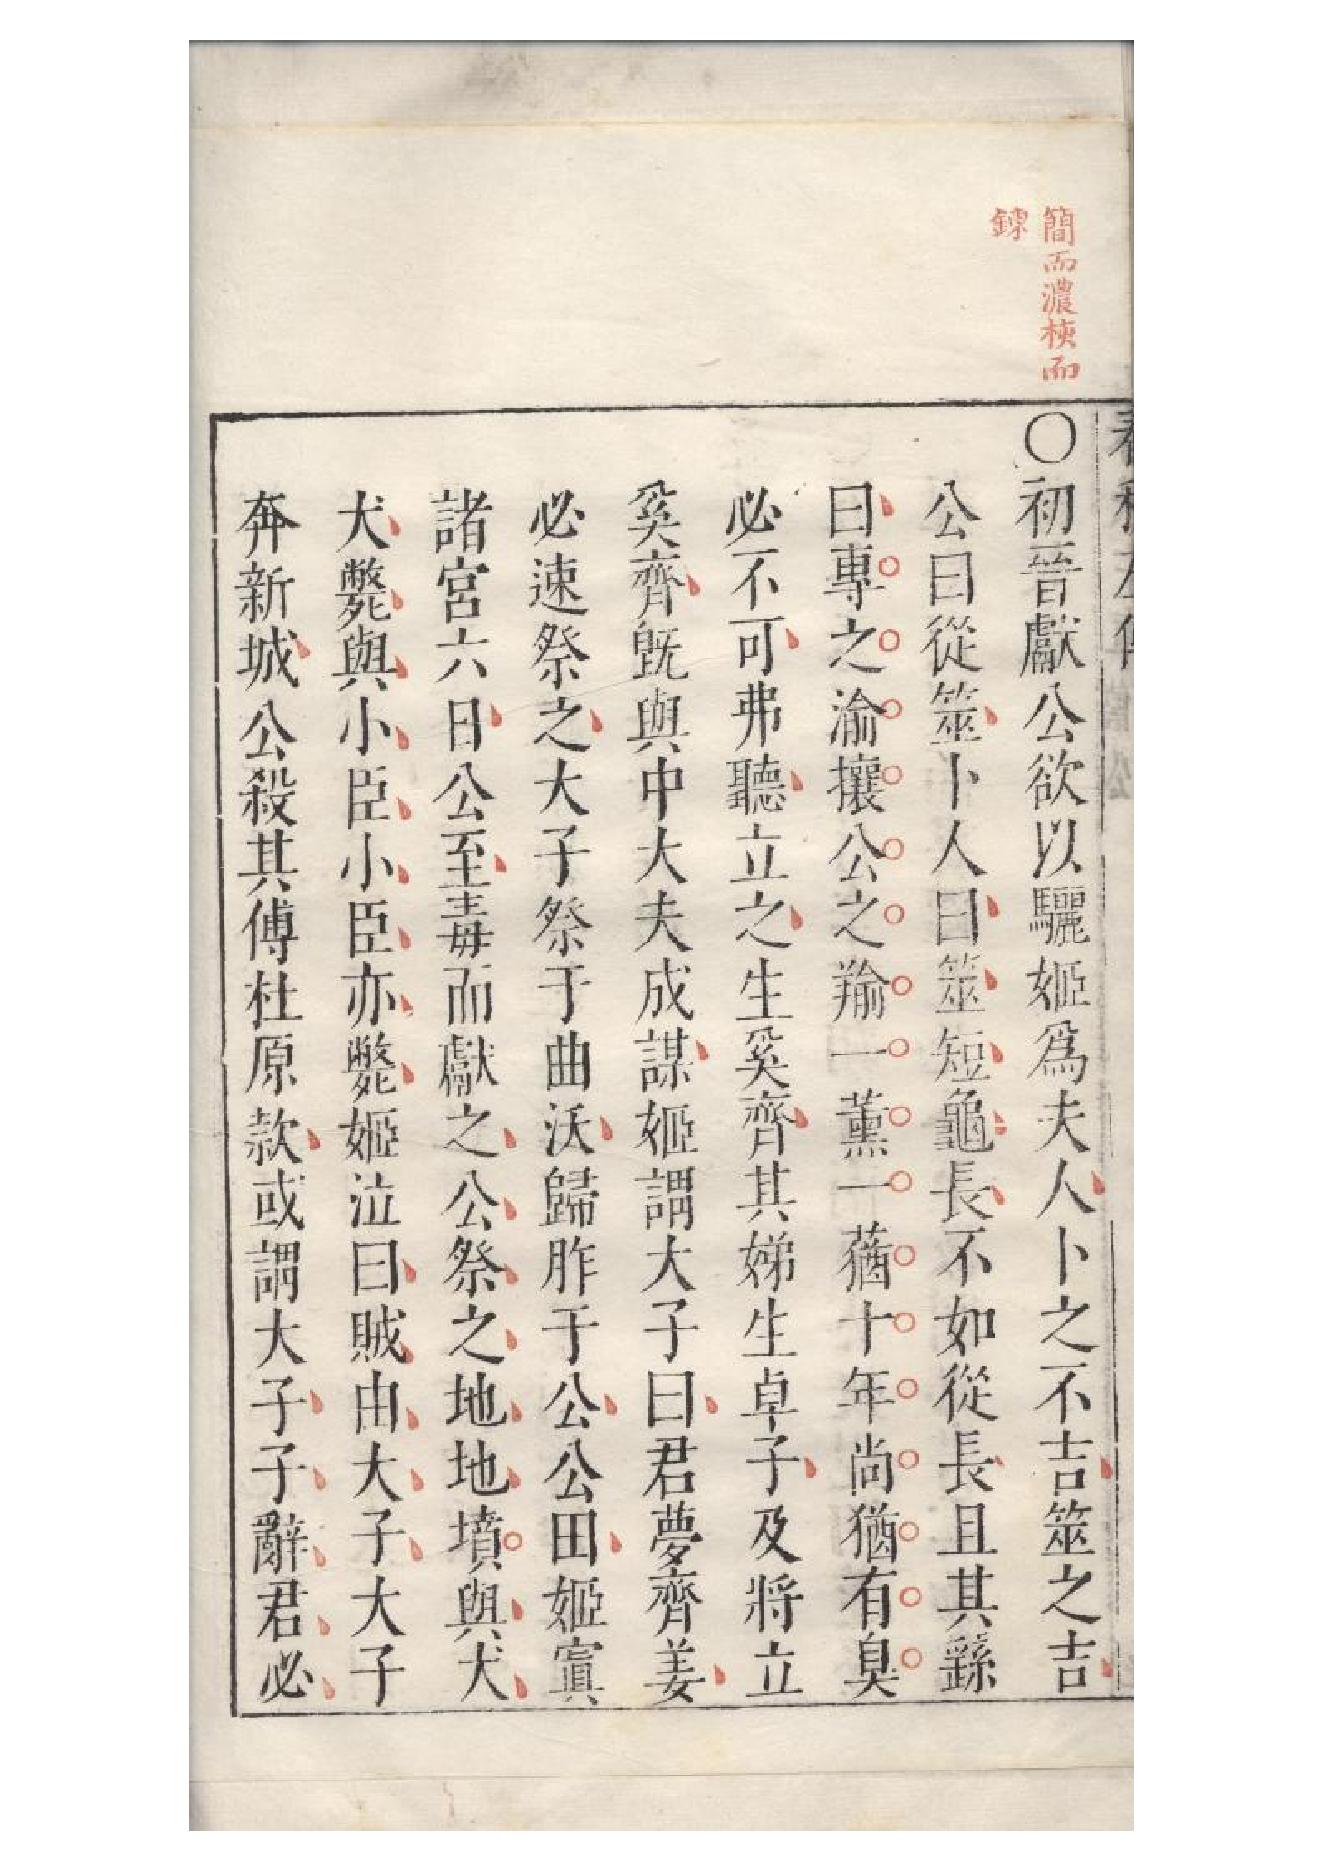 簡而濃棟而
鍊
〇初晉獻公欲以驪姬爲夫人卜之不吉筮之吉
公曰從筮卜人曰筮短龜長不如從長且其繇
曰專之渝攘公之羭一薰一蕕十年尚猶有臭
必不可弗聽立之生奚齊其娣生卓子及將立
奚齊旣與中大夫成謀姬謂大子曰君夢齊姜
必速祭之大子祭于曲沃歸胙于公公田姬寘
諸宮六日公至毒而獻之公祭之地地墳與犬
犬斃與小臣小臣亦斃姬泣曰賊由大子大子
奔新城公殺其傅杜原款或謂大子子辭君必